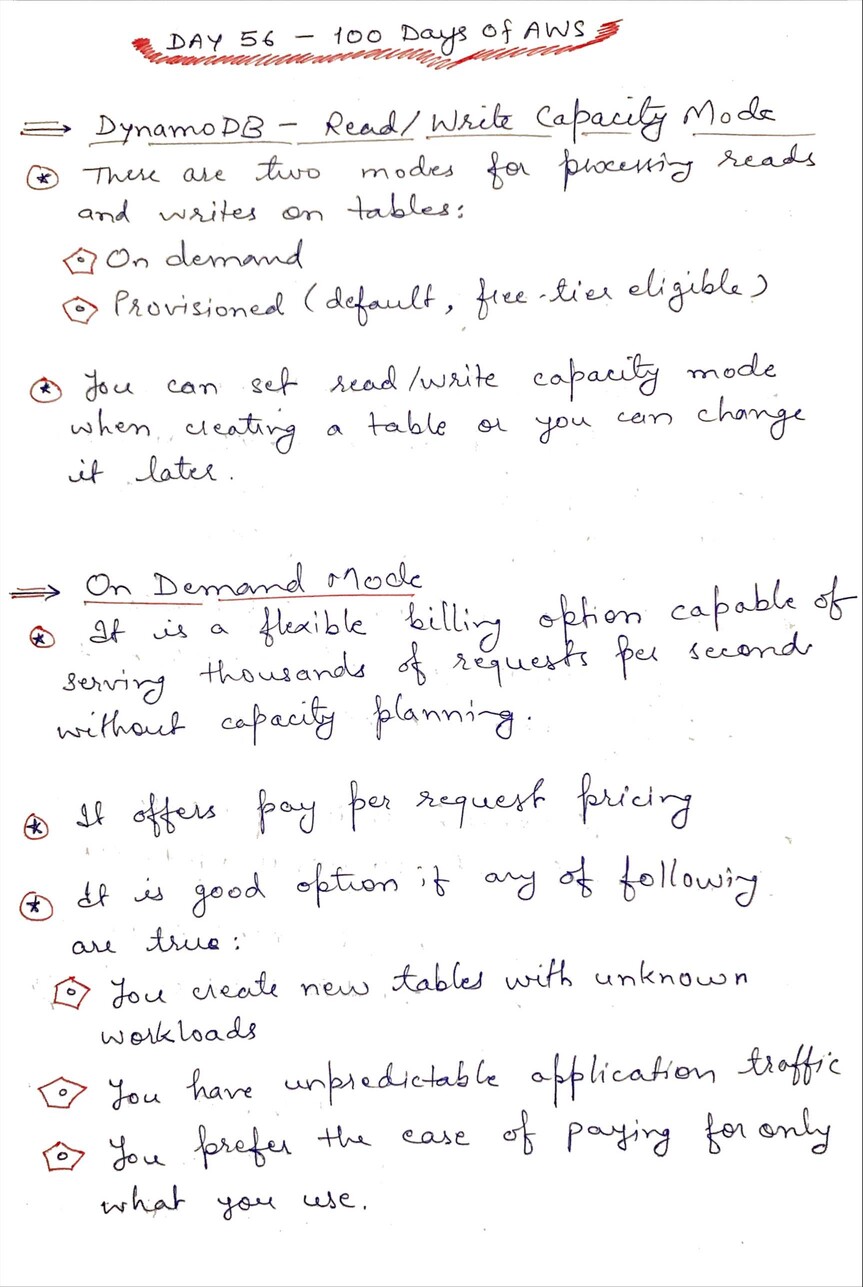 DAY 56 - 100 Days of AWS
DynamoDB - Read/Write Capacity Mode
There are two modes for processing reads
and writes on tables:
On demand
Provisioned (default, free-tier eligible)
You can set read/write capacity mode
when creating a table or you can change
it later.
On Demand Mode
It is a flexible billing option capable of
serving thousands of requests per second
without capacity planning.
It offers pay per request pricing
It is good option if any of following
are true:
You create new tables with unknown
workloads
You have unpredictable application traffic
You prefer the ease of paying for only
what you use.